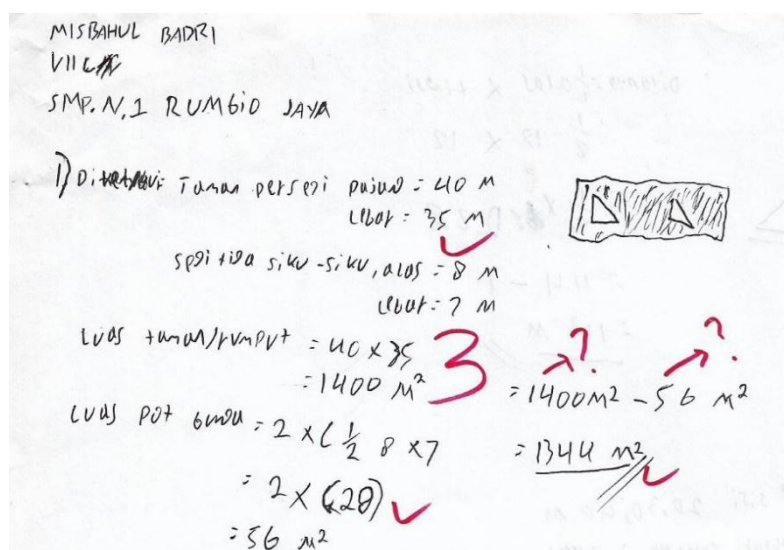 MISBAHUL BADRI
VII C
SMP. N. 1 RUMBIO JAYA
1) Diketahui: Taman persegi pajang = 40 M
lebar = 35 M
segi tiga siku-siku, alas = 8 M
lebar = 7 M
Luas taman/rumput = 40 x 35
= 1400 M²
3
Luas pot bunga = 2 x ( 1/2 8 x 7
= 2 x (28)
= 56 M²
? ?
= 1400 M2 - 56 M²
= 1344 M²